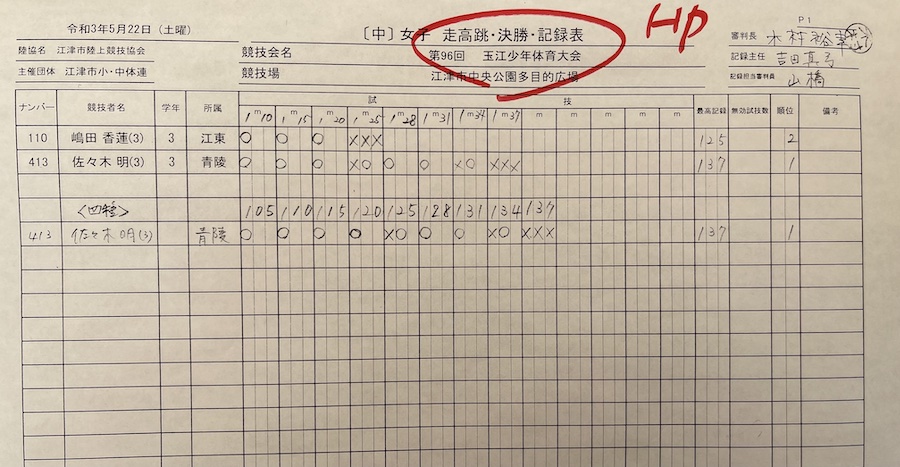 令和3年5月22日（土曜）
〔中〕女子 走高跳・決勝・記録表
HP
P1
陸協名 江津市陸上競技協会
競技会名 第96回 玉江少年体育大会
審判長 木村
主催団体 江津市小・中体連
競技場 江津市中央公園多目的広場
記録主任 吉田真弓
記録担当審判員 山橋
ナンバー 競技者名 学年 所属 試技 最高記録 無効試技数 順位 備考
1m10 1m15 1m20 1m25 1m28 1m31 1m34 1m37 m m m m
110 嶋田 香蓮(3) 3 江東 O O O XXX 125 2
413 佐々木 明(3) 3 青陵 O O O XO O O XO XXX 137 1
<四種> 105 110 115 120 125 128 131 134 137
413 佐々木明(3) 青陵 O O O O XO O O XO XXX 137 1